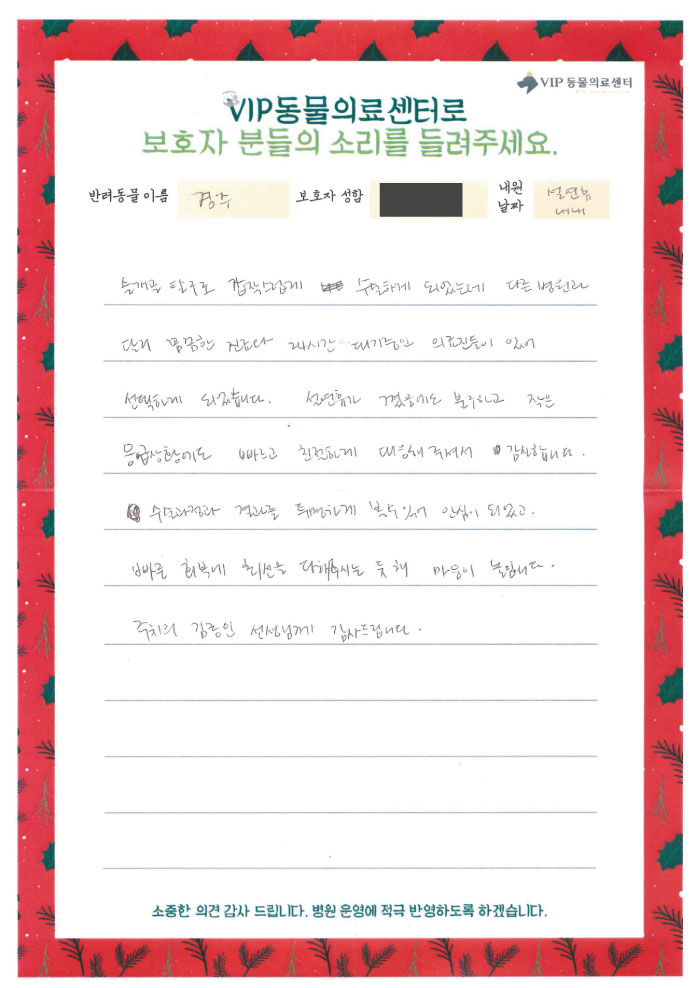 VIP 동물의료센터
VIP동물의료센터로
보호자 분들의 소리를 들려주세요.
반려동물 이름 경주 보호자 성함 내원 날짜 설연휴 내내
슬개골 탈구로 갑작스럽게 수술하게 되었는데 다른 병원과
달리 꼼꼼한 진료와 24시간 대기중인 의료진들이 있어
선택하게 되었습니다. 설연휴가 꼈음에도 불구하고 작은
응급상황에도 빠르고 친절하게 대응해주셔서 감사합니다.
수술과정과 결과를 투명하게 볼수있어 안심이 되었고.
빠른 회복에 최선을 다해주시는 듯해 마음이 놓입니다.
주치의 선생님께 감사드립니다.
소중한 의견 감사 드립니다. 병원 운영에 적극 반영하도록 하겠습니다.